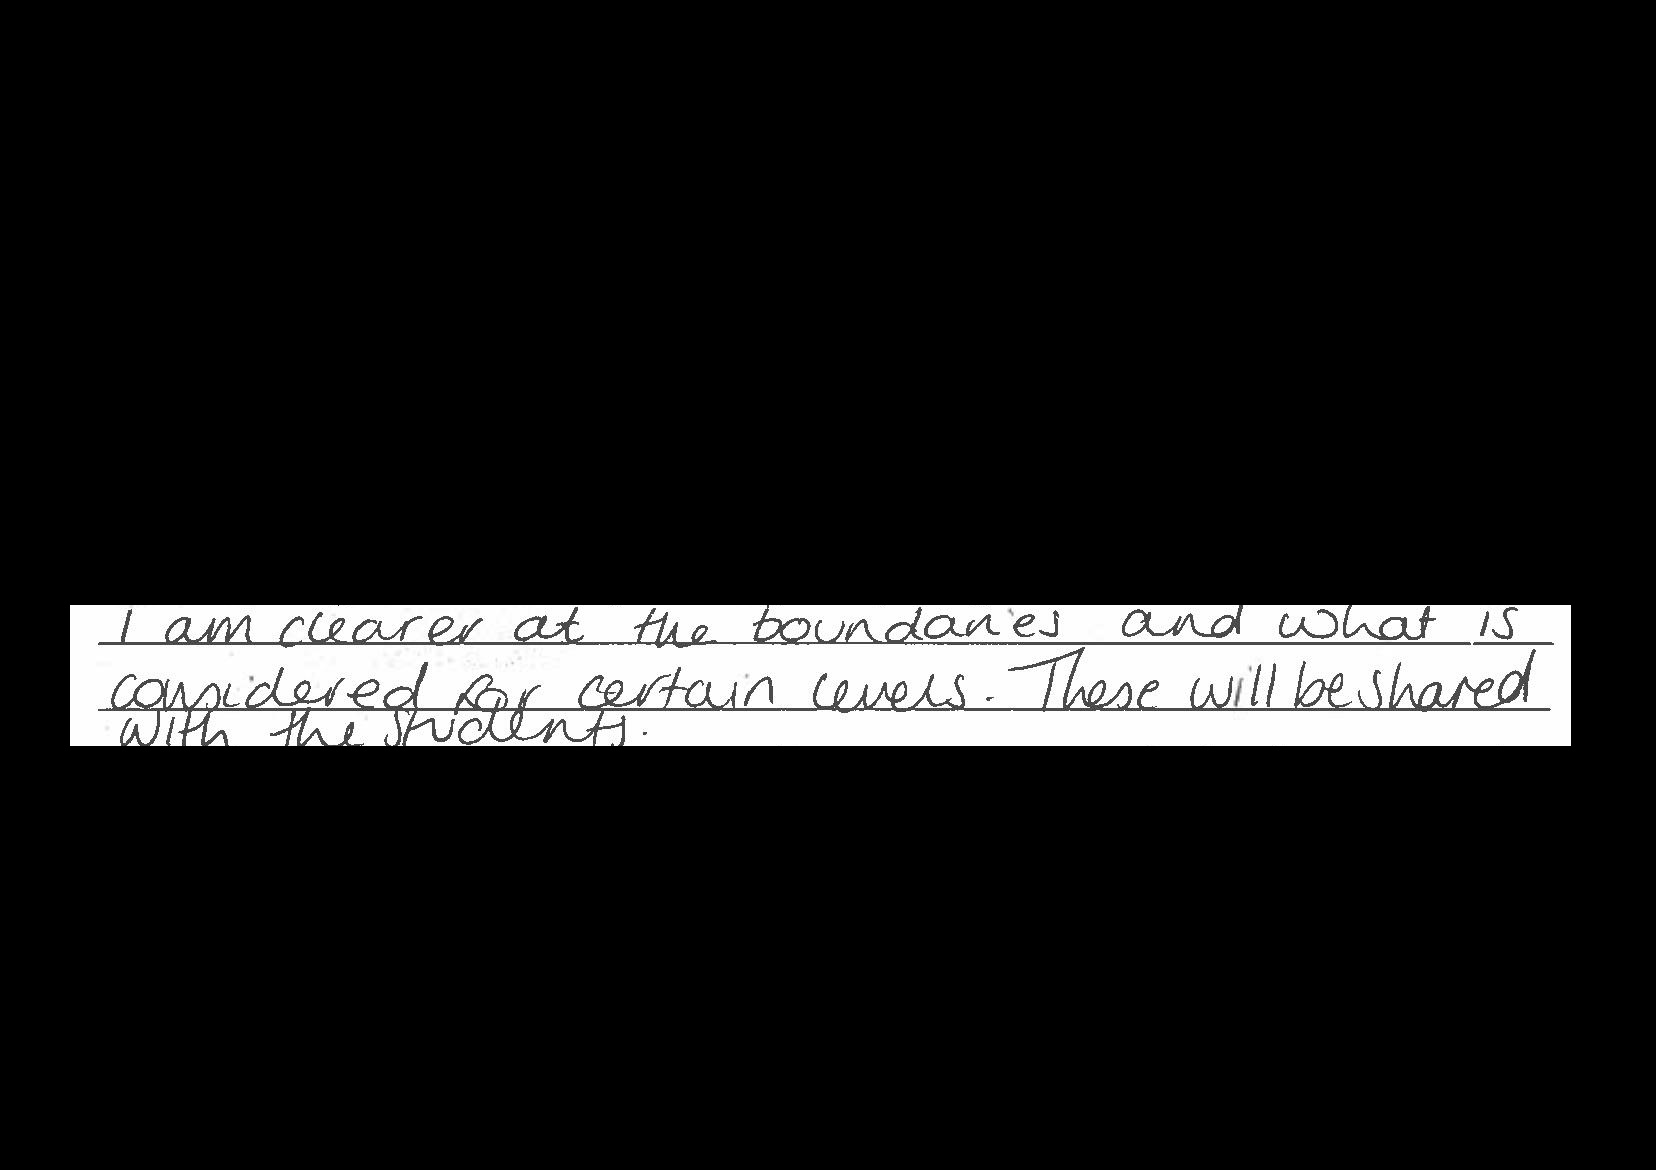 I am clearer at the boundaries and what is
considered for certain levels. These will be shared
with the students.